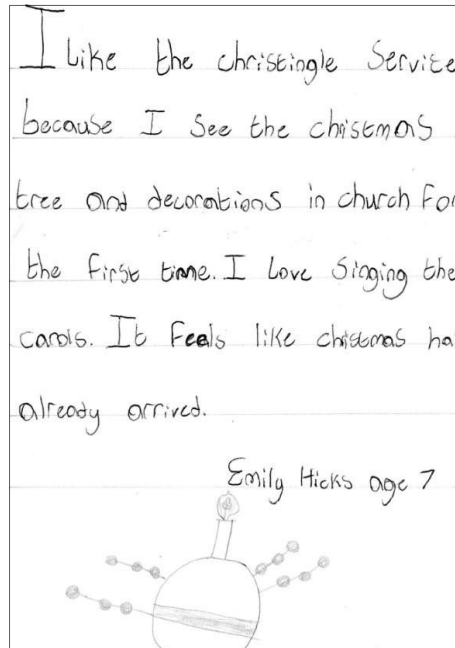 I Like the christingle Service
because I See the christmas
tree and decorations in church For
the First time. I Love Singing the
carols. It Feels like christmas ha
already arrived.
Emily Hicks age 7